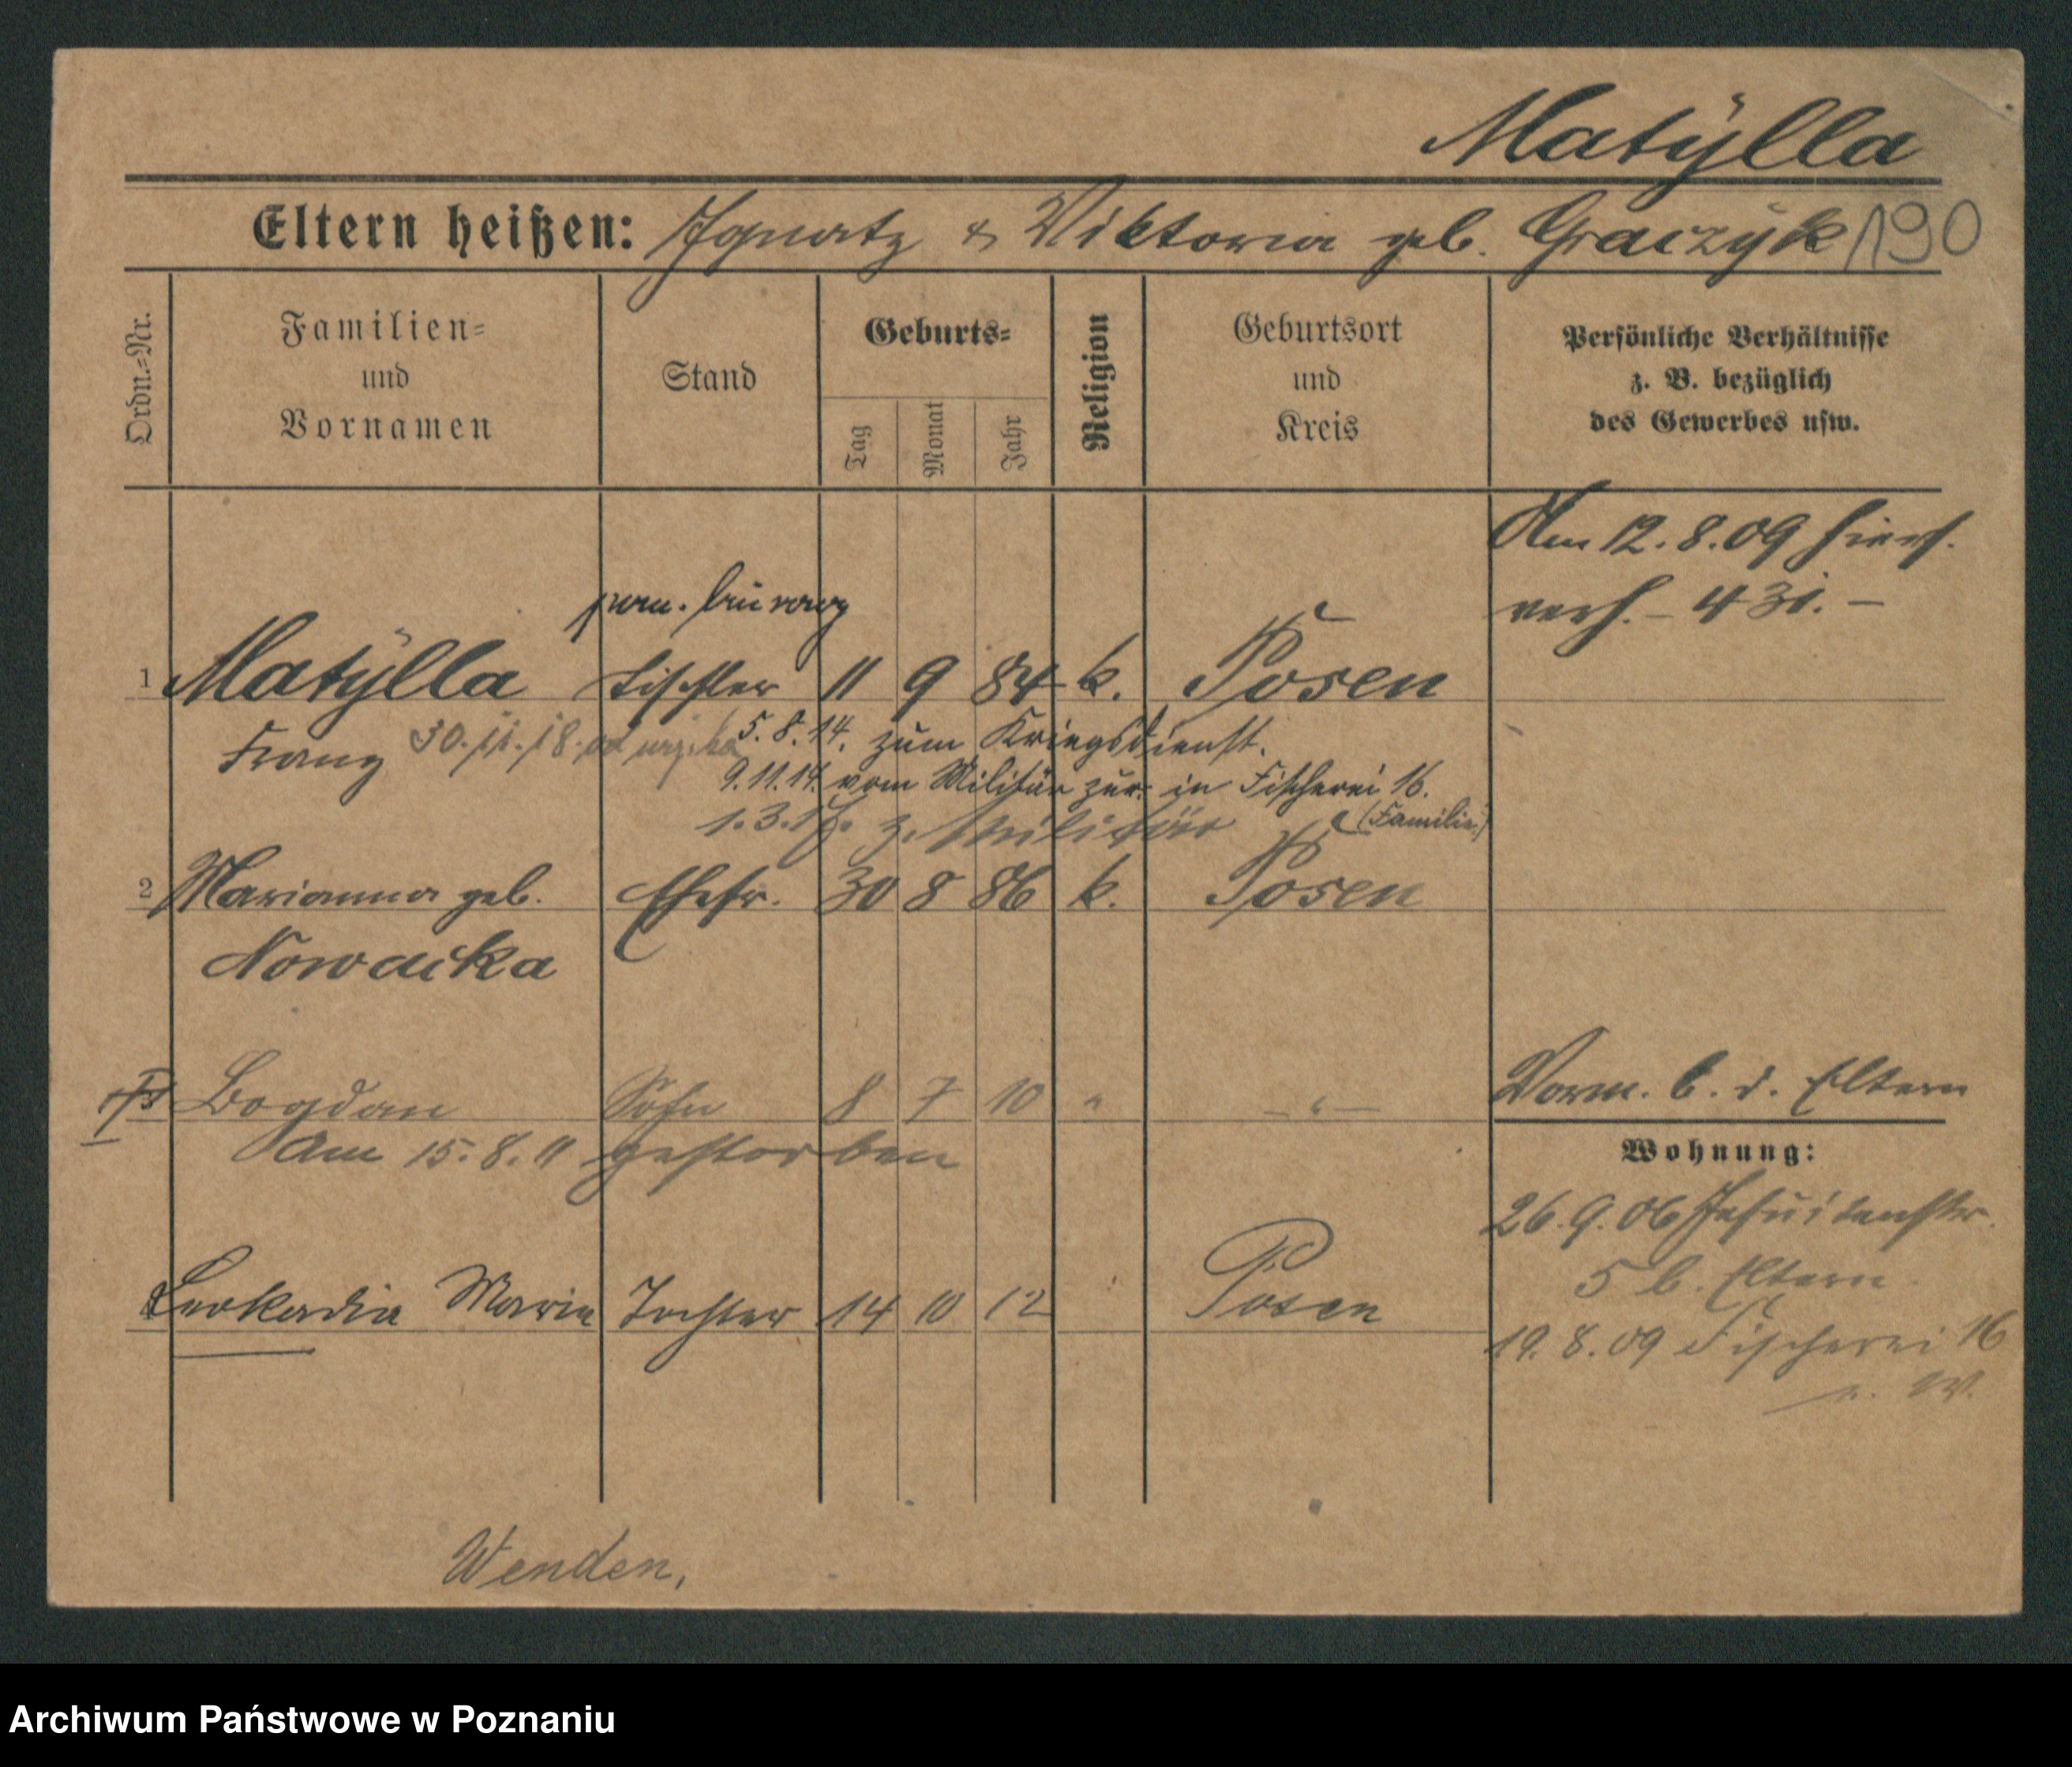 Matylla
Eltern heißen: Ignatz & Viktoria geb. Graczyk 190
Ordn.=Nr.
Familien=
und
Vornamen
Stand
Geburts=
Tag
Monat
Jahr
Religion
Geburtsort
und
Kreis
Persönliche Verhältnisse
z. B. bezüglich
des Gewerbes usw.
Am 12.8.09 hiers.
verh. – 431. –
1 Matylla Tischler 11 9 84 k. Posen
Franz 30.11.18. 5.8.14. zum Kriegsdienst.
9.11.14. vom Militär zur. in Fischerei 16.
(Familie)
1.3.17. z. Militär
2 Marianna geb. Ehefr. 30 8 86 k. Posen
Nowacka
Bogdan Sohn 8 7 10 " – " –
Am 15.8.11 gestorben
Vorm. b. d. Eltern
Wohnung:
26.9.06 Jesuitenstr.
5 b. Eltern
Leokadia Maria Tochter 14 10 12 Posen
19.8.09 Fischerei 16
Wenden,
Archiwum Państwowe w Poznaniu